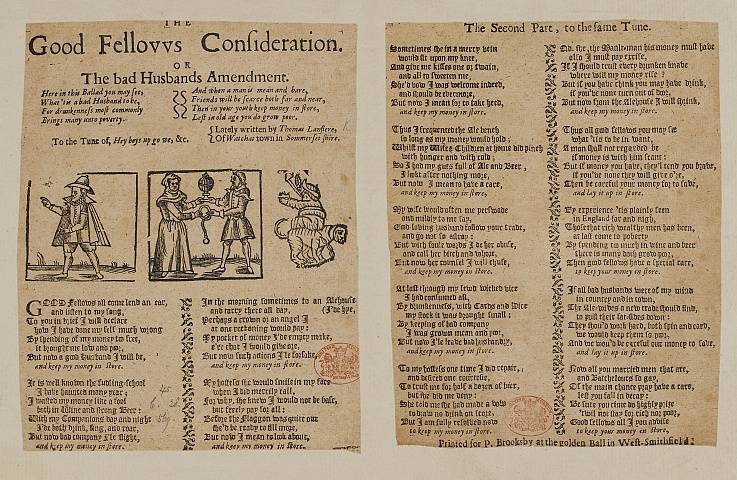 THE
Good Fellovvs Consideration.
OR
The bad Husbands Amendment.
Here in this Ballad you may see,
What 'tis a bad Husband to be,
For drunkenness most commonly
Brings many unto poverty.
And when a man is mean and bare,
Friends will be scarce both far and near,
Then in your youth keep money in store,
Lest in old age you do grow poor.
Lately written by Thomas Lanfiere,
Of Watchat town in Sommerset shire.
To the Tune of, Hey boys up go we, &c.
GOOD Fellows all come lend an ear,
and listen to my song,
To you in brief I will declare
how I have done my self much wrong
By spending of my money so free,
it brought me low and poor,
But now a good husband I will be,
and keep my money in store.
It is well known the fudling-school
I have haunted many year;
I wasted my money like a fool
both in Wine and strong Beer:
With my Companions day and night
I've both drink, sing, and roar,
But now bad company I'le slight,
and keep my money in store.
In the morning sometimes to an Alehouse
and tarry there all day, (I'de hye,
Perhaps a crown or an angel I
at one reckoning would pay:
My pocket of money I'de empty make,
e're that I would give o're,
But now such actions I'le forsake
and keep my money in store.
My hostess she would smile in my face
when I did merrily call,
For why, she knew I would not be base,
but freely pay for all:
Before the Flaggon was quite out
she'd be ready to fill more,
But now I mean to look about,
and keep my money in store.
The Second Part, to the same Tune.
Sometimes she in a merry vein
would sit upon my knee,
And give me kisses one or twain,
and all to sweeten me,
She'd vow I was welcome indeed,
and should be evermore,
But now I mean for to take heed,
and keep my money in store.
Thus I frequented the Ale bench
so long as my money would hold;
Whilst my Wife & Children at home did pinch
with hunger and with cold;
So I had my guts full of Ale and Beer,
I lookt after nothing more,
But now I mean to have a care,
and keep my money in store.
My wife would often me perswade
and mildly to me say,
Good loving husband follow your trade,
and go not so astray:
But with foule words I de her abuse,
and call her bitch and whore,
But now her counsel I will chuse,
and keep my money in store.
At last through my lewd wicked vice
I had consumed all,
By drunkenness, with Cards and Dice
my stock it was brought small:
By keeping of bad company
I was grown mean and poor,
But now I'le leave bad husbandly,
and keep my money in store.
To my hostess one time I did repair,
and desired one courtesie,
To trust me for half a dozen of bier,
but she did me deny:
She told me she had made a vow
to draw no drink on score,
But I am fully resolved now
to keep my money in store.
Od, she, the Maulsman his money must have
also I must pay excise,
If I should trust every drunken knave
where will my money rise?
But if you have chink you may have drink,
if you've none turn out of door,
But now from the Alehouse I will shrink,
and keep my money in store.
Thus all good fellows you may see
what 'tis to be in want,
A man shall not regarded be
if money is with him scant:
But if money you have, they'l tend you brave,
if you've none they will give o're,
Then be careful your money for to save,
and lay it up in store.
By experience 'tis plainly seen
in England far and nigh,
Those that rich wealthy men has been,
at last come to poverty
By spending to much in wine and beer
there is many doth grow poor,
Then good fellows have a special care,
to keep your money in store.
If all bad husbands were of my mind
in country and in town,
The Ale-wives a new trade should find,
to pull their fat-sides down:
They should work hard, both spin and card,
we would keep them so poor,
And we wou'd be careful our money to save,
and lay it up in store.
Now all you married men that are,
and Batchelours so gay,
Of the main chance pray have a care,
lest you fall in decay:
Be sure you chuse do highly prize
'twill not stay for rich nor poor,
Good fellows all I you advise
to keep your money in store.
Printed for P. Brooksby at the golden Ball in West-Smithfield.